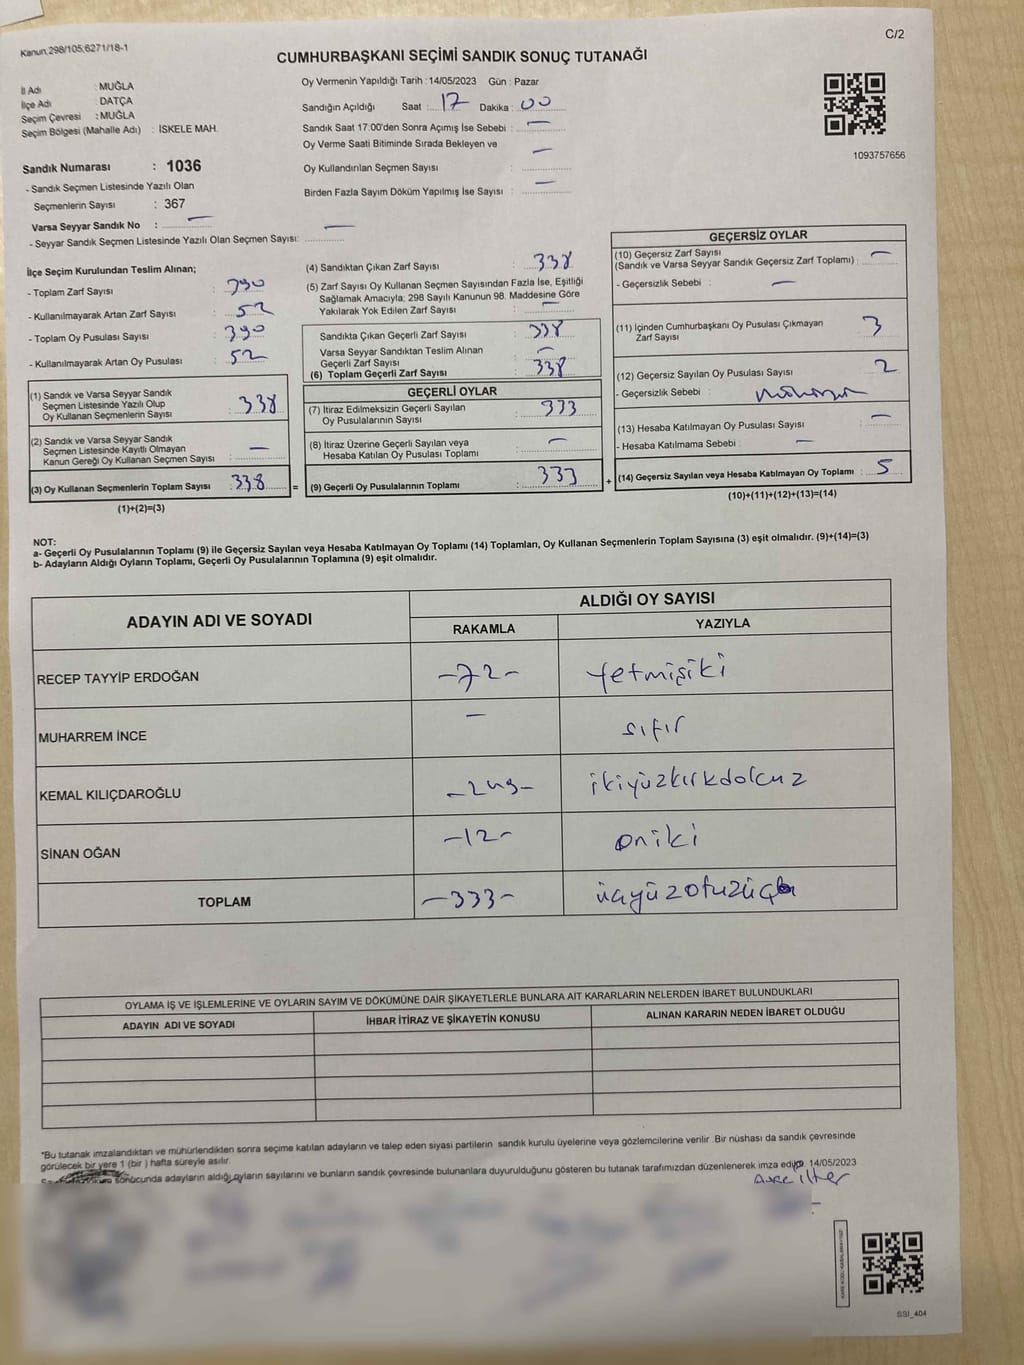 Kanun,298/105;6271/18-1
C/2
CUMHURBAŞKANI SEÇİMİ SANDIK SONUÇ TUTANAĞI
İl Adı : MUĞLA
İlçe Adı : DATÇA
Seçim Çevresi : MUĞLA
Seçim Bölgesi (Mahalle Adı) : İSKELE MAH.
Sandık Numarası : 1036
- Sandık Seçmen Listesinde Yazılı Olan
Seçmenlerin Sayısı : 367
Varsa Seyyar Sandık No : —
- Seyyar Sandık Seçmen Listesinde Yazılı Olan Seçmen Sayısı: —
Oy Vermenin Yapıldığı Tarih : 14/05/2023 Gün : Pazar
Sandığın Açıldığı Saat : 17 Dakika : 00
Sandık Saat 17:00'den Sonra Açımış İse Sebebi : —
Oy Verme Saati Bitiminde Sırada Bekleyen ve —
Oy Kullandırılan Seçmen Sayısı :
Birden Fazla Sayım Döküm Yapılmış İse Sayısı : —
1093757656
İlçe Seçim Kurulundan Teslim Alınan;
- Toplam Zarf Sayısı : 390
- Kullanılmayarak Artan Zarf Sayısı : 52
- Toplam Oy Pusulası Sayısı : 390
- Kullanılmayarak Artan Oy Pusulası : 52
(1) Sandık ve Varsa Seyyar Sandık
Seçmen Listesinde Yazılı Olup
Oy Kullanan Seçmenlerin Sayısı : 338
(2) Sandık ve Varsa Seyyar Sandık
Seçmen Listesinde Kayıtlı Olmayan
Kanun Gereği Oy Kullanan Seçmen Sayısı : —
(3) Oy Kullanan Seçmenlerin Toplam Sayısı : 338
(1)+(2)=(3)
(4) Sandıktan Çıkan Zarf Sayısı : 338
(5) Zarf Sayısı Oy Kullanan Seçmen Sayısından Fazla İse, Eşitliği
Sağlamak Amacıyla; 298 Sayılı Kanunun 98. Maddesine Göre
Yakılarak Yok Edilen Zarf Sayısı : —
Sandıkta Çıkan Geçerli Zarf Sayısı : 338
Varsa Seyyar Sandıktan Teslim Alınan
Geçerli Zarf Sayısı : —
(6) Toplam Geçerli Zarf Sayısı : 338
GEÇERLİ OYLAR
(7) İtiraz Edilmeksizin Geçerli Sayılan
Oy Pusulalarının Sayısı : 333
(8) İtiraz Üzerine Geçerli Sayılan veya
Hesaba Katılan Oy Pusulası Toplamı : —
= (9) Geçerli Oy Pusulalarının Toplamı : 333
GEÇERSİZ OYLAR
(10) Geçersiz Zarf Sayısı
(Sandık ve Varsa Seyyar Sandık Geçersiz Zarf Toplamı) : —
- Geçersizlik Sebebi : —
(11) İçinden Cumhurbaşkanı Oy Pusulası Çıkmayan
Zarf Sayısı : 3
(12) Geçersiz Sayılan Oy Pusulası Sayısı : 2
- Geçersizlik Sebebi :
(13) Hesaba Katılmayan Oy Pusulası Sayısı : —
- Hesaba Katılmama Sebebi : —
+ (14) Geçersiz Sayılan veya Hesaba Katılmayan Oy Toplamı : 5
(10)+(11)+(12)+(13)=(14)
NOT:
a- Geçerli Oy Pusulalarının Toplamı (9) ile Geçersiz Sayılan veya Hesaba Katılmayan Oy Toplamı (14) Toplamları, Oy Kullanan Seçmenlerin Toplam Sayısına (3) eşit olmalıdır. (9)+(14)=(3)
b- Adayların Aldığı Oyların Toplamı, Geçerli Oy Pusulalarının Toplamına (9) eşit olmalıdır.
ADAYIN ADI VE SOYADI
ALDIĞI OY SAYISI
RAKAMLA YAZIYLA
RECEP TAYYİP ERDOĞAN -72- Yetmişiki
MUHARREM İNCE — sıfır
KEMAL KILIÇDAROĞLU -249- ikiyüzkırkdokuz
SİNAN OĞAN -12- oniki
TOPLAM -333- üçyüzotuzüç
OYLAMA İŞ VE İŞLEMLERİNE VE OYLARIN SAYIM VE DÖKÜMÜNE DAİR ŞİKAYETLERLE BUNLARA AİT KARARLARIN NELERDEN İBARET BULUNDUKLARI
ADAYIN ADI VE SOYADI İHBAR İTİRAZ VE ŞİKAYETİN KONUSU ALINAN KARARIN NEDEN İBARET OLDUĞU
*Bu tutanak imzalandıktan ve mühürlendikten sonra seçime katılan adayların ve talep eden siyasi partilerin sandık kurulu üyelerine veya gözlemcilerine verilir .Bir nüshası da sandık çevresinde
görülecek bir yere 1 (bir ) hafta süreyle asılır.
sonucunda adayların aldığı oyların sayılarını ve bunların sandık çevresinde bulunanlara duyurulduğunu gösteren bu tutanak tarafımızdan düzenlenerek imza edildi. 14/05/2023
SSI_404